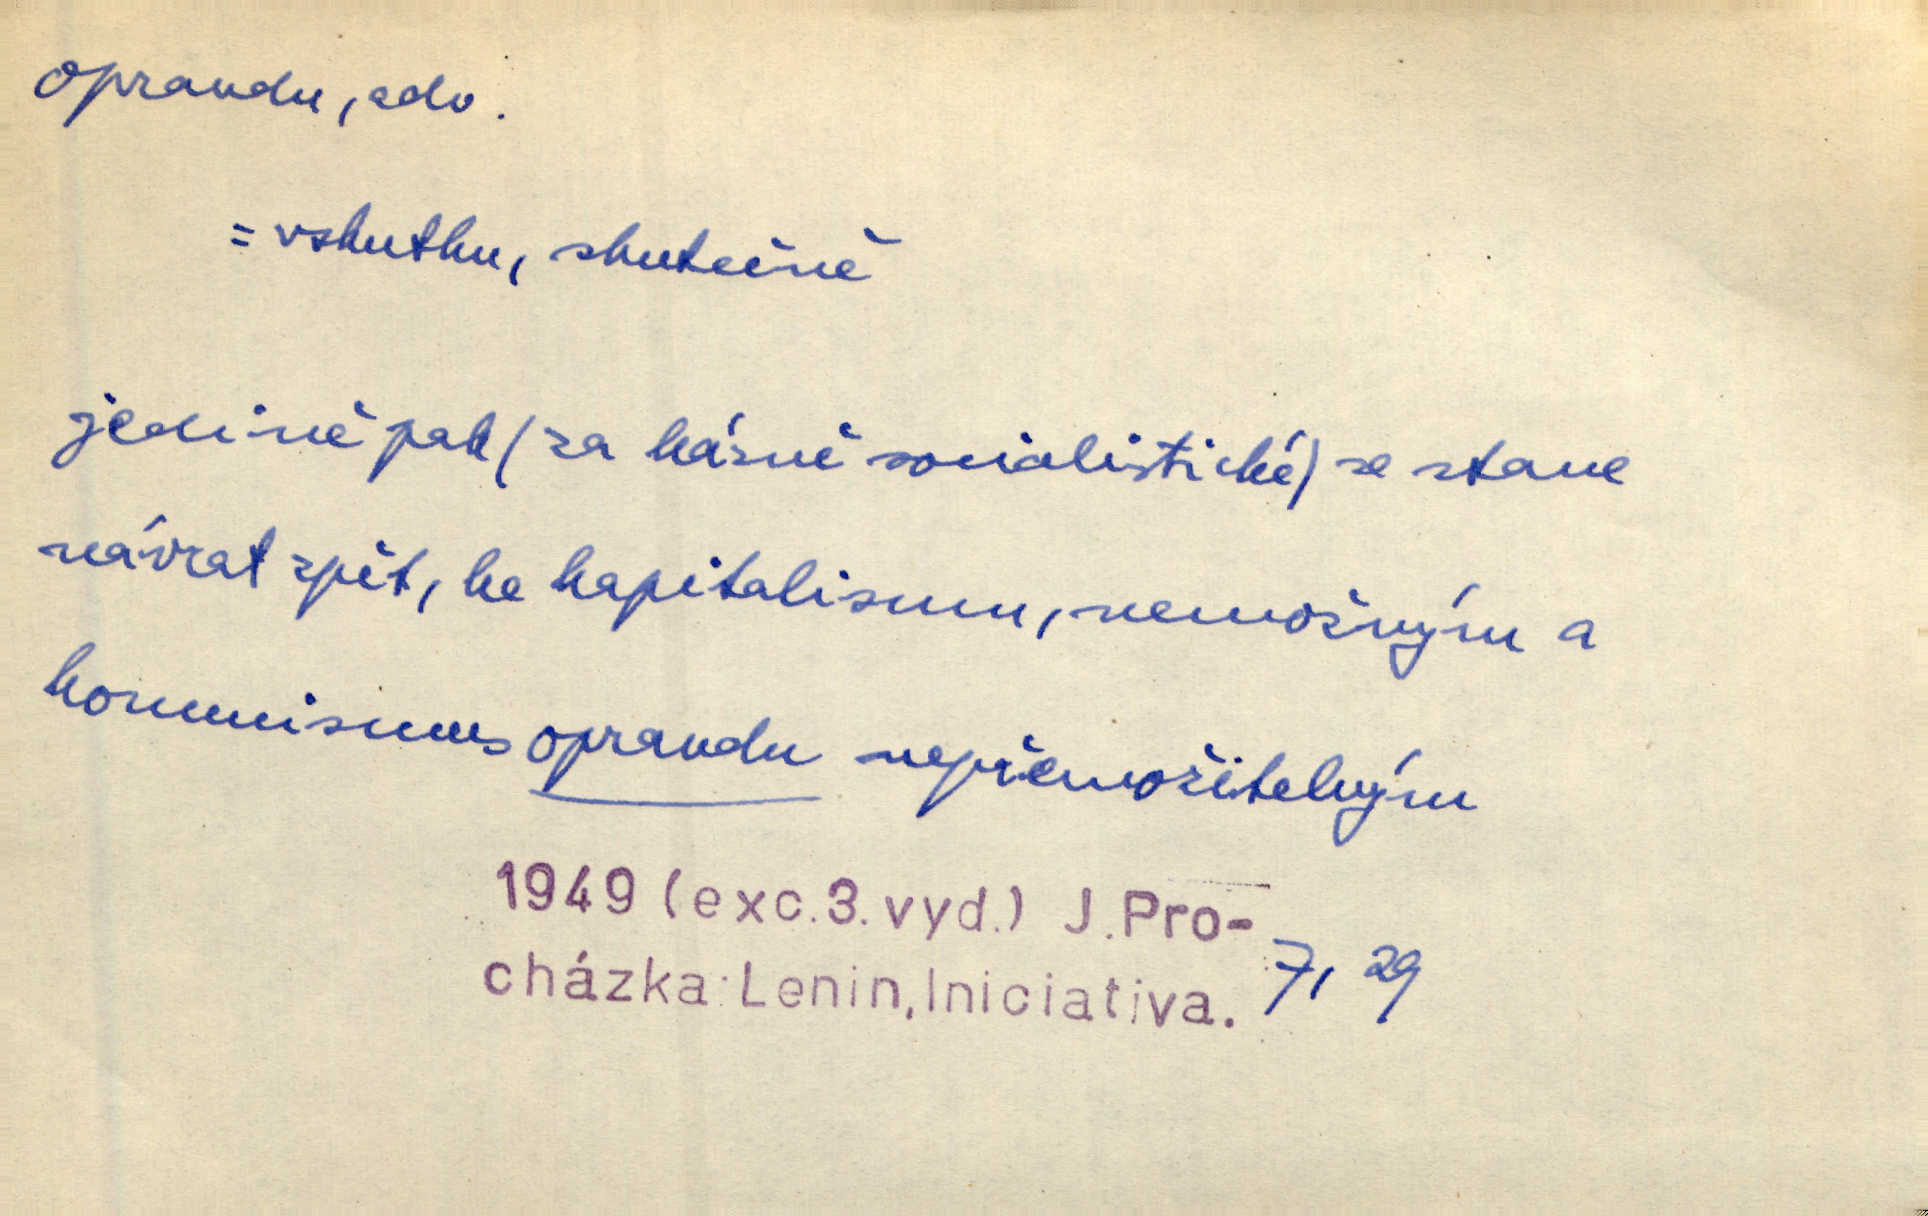 opravdu, adv.
= vskutku, skutečně
jedině pak (za kázně socialistické) se stane
návrat zpět, ke kapitalismu, nemožným a
komunismus opravdu nepřemožitelným
1949 (exc. 3. vyd.) J. Pro-
cházka: Lenin, Iniciativa. 7, 29